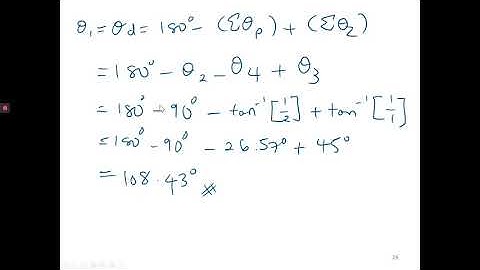 θ₁ = θd = 180° - (Σθp) + (Σθz)
= 180° - θ₂ - θ4 + θ3
= 180° - 90° - tan⁻¹[1/2] + tan⁻¹[1/1]
= 180° - 90° - 26.57° + 45°
= 108.43°